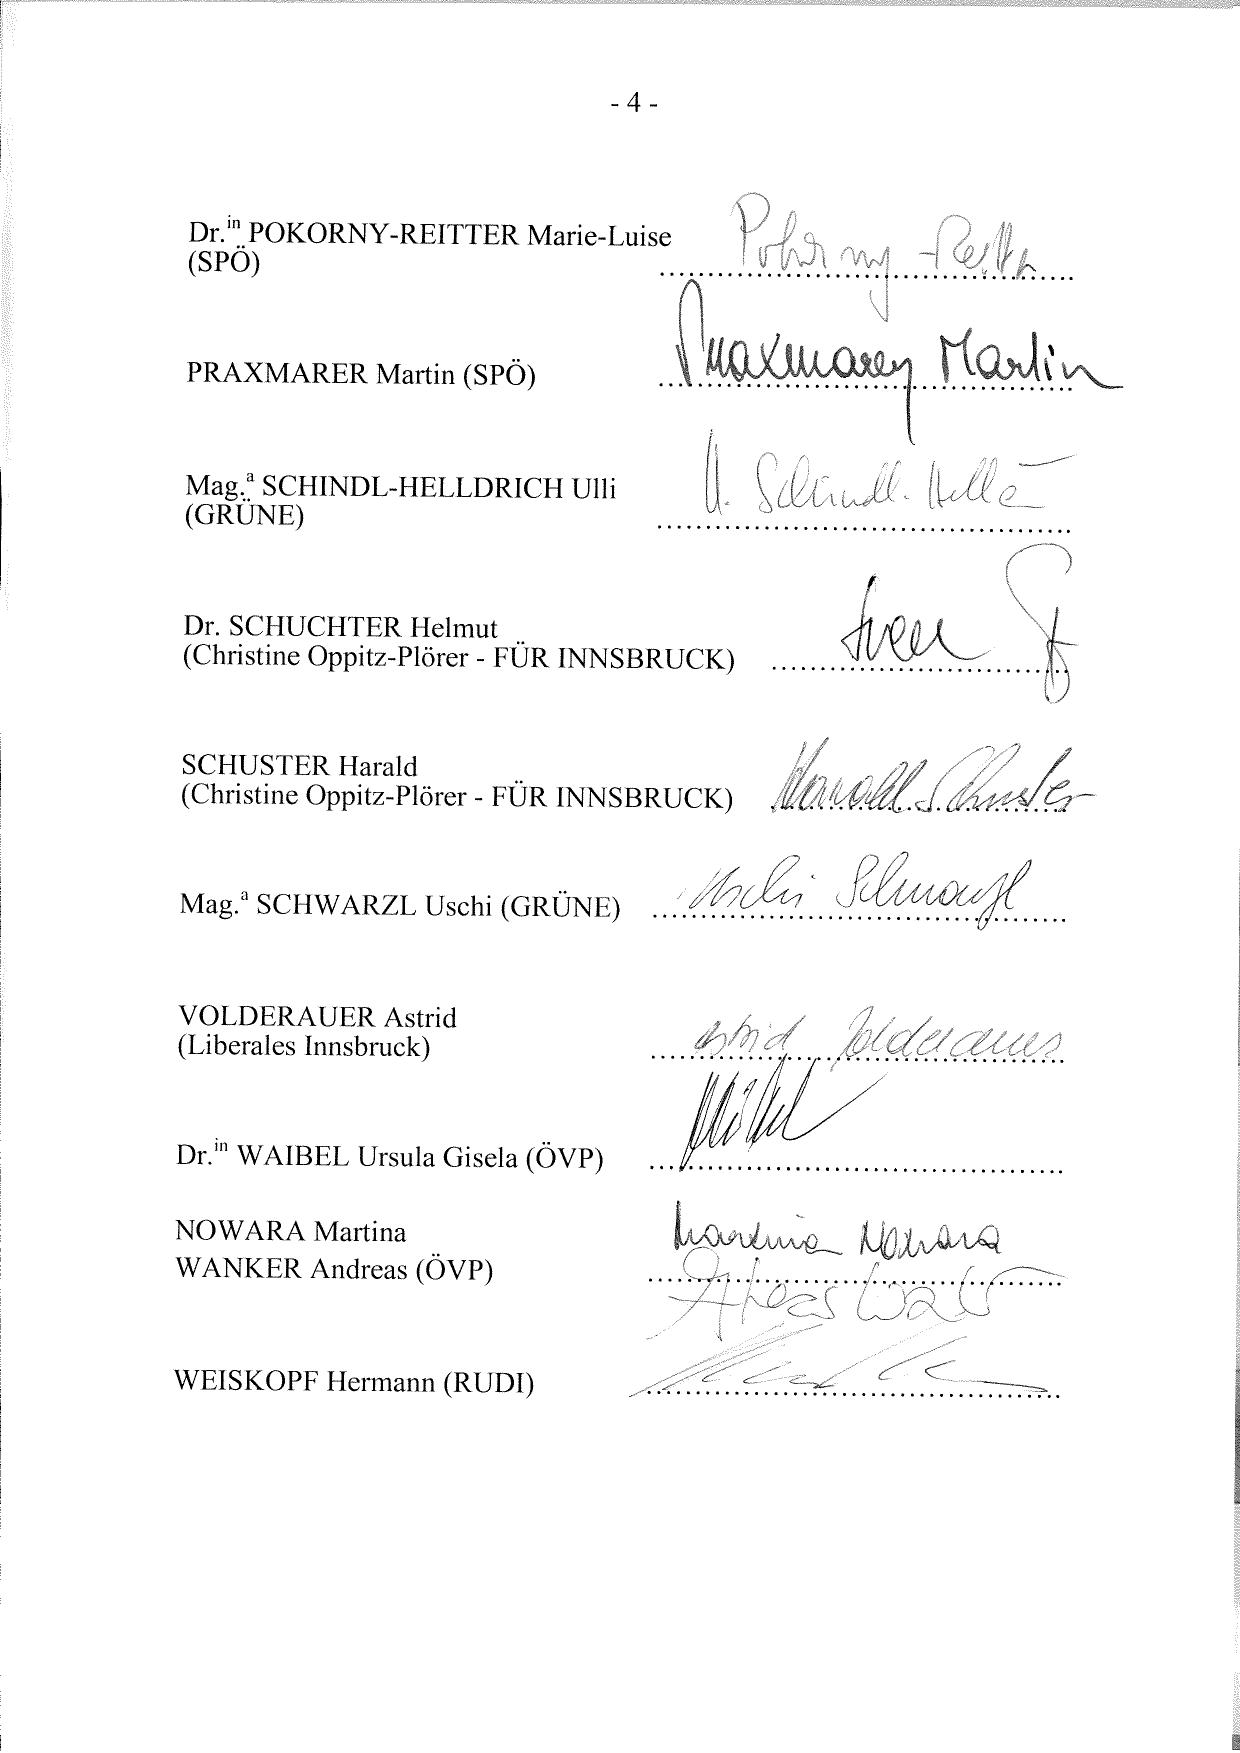 - 4 -
Dr.in POKORNY-REITTER Marie-Luise
(SPÖ)
Pokorny-Reitter
PRAXMARER Martin (SPÖ)
Praxmarer Martin
Mag.a SCHINDL-HELLDRICH Ulli
(GRÜNE)
U. Schindl-Helld
Dr. SCHUCHTER Helmut
(Christine Oppitz-Plörer - FÜR INNSBRUCK)
SCHUSTER Harald
(Christine Oppitz-Plörer - FÜR INNSBRUCK)
Harald Schuster
Mag.a SCHWARZL Uschi (GRÜNE)
Uschi Schwarzl
VOLDERAUER Astrid
(Liberales Innsbruck)
Astrid Volderauer
Dr.in WAIBEL Ursula Gisela (ÖVP)
NOWARA Martina
Martina Nowara
WANKER Andreas (ÖVP)
WEISKOPF Hermann (RUDI)